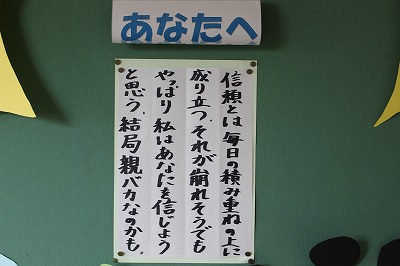 あなたへ
信頼とは毎日の積み重ねの上に
成り立つ。それが崩れそうでも
やっぱり私はあなたを信じよう
と思う。結局親バカなのかも。